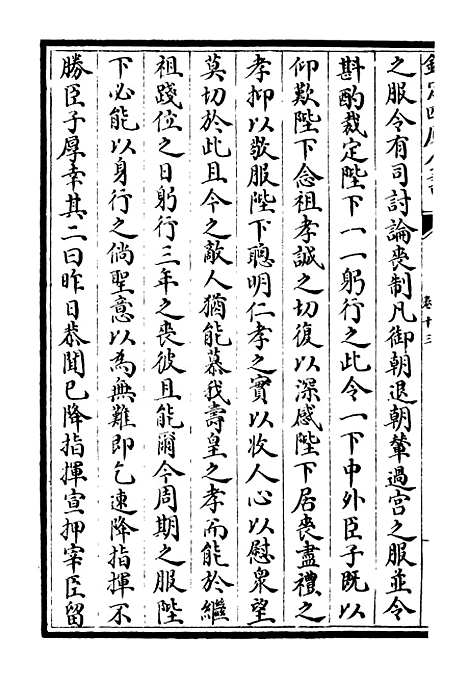 欽定四庫全書
卷十三
之服令有司討論喪制凡御朝退朝輦過宮之服並令
斟酌裁定陛下一一躬行之此令一下中外臣子既以
仰歎陛下念祖孝誠之切復以深感陛下居喪盡禮之
孝抑以敬服陛下聰明仁孝之實以收人心以慰衆望
莫切於此且今之敵人猶能慕我壽皇之孝而能於繼
祖踐位之日躬行三年之喪彼且能爾今周期之服陛
下必能以身行之倘聖意以為無難即乞速降指揮不
勝臣子厚幸其二曰昨日恭聞已降指揮宣押宰臣留